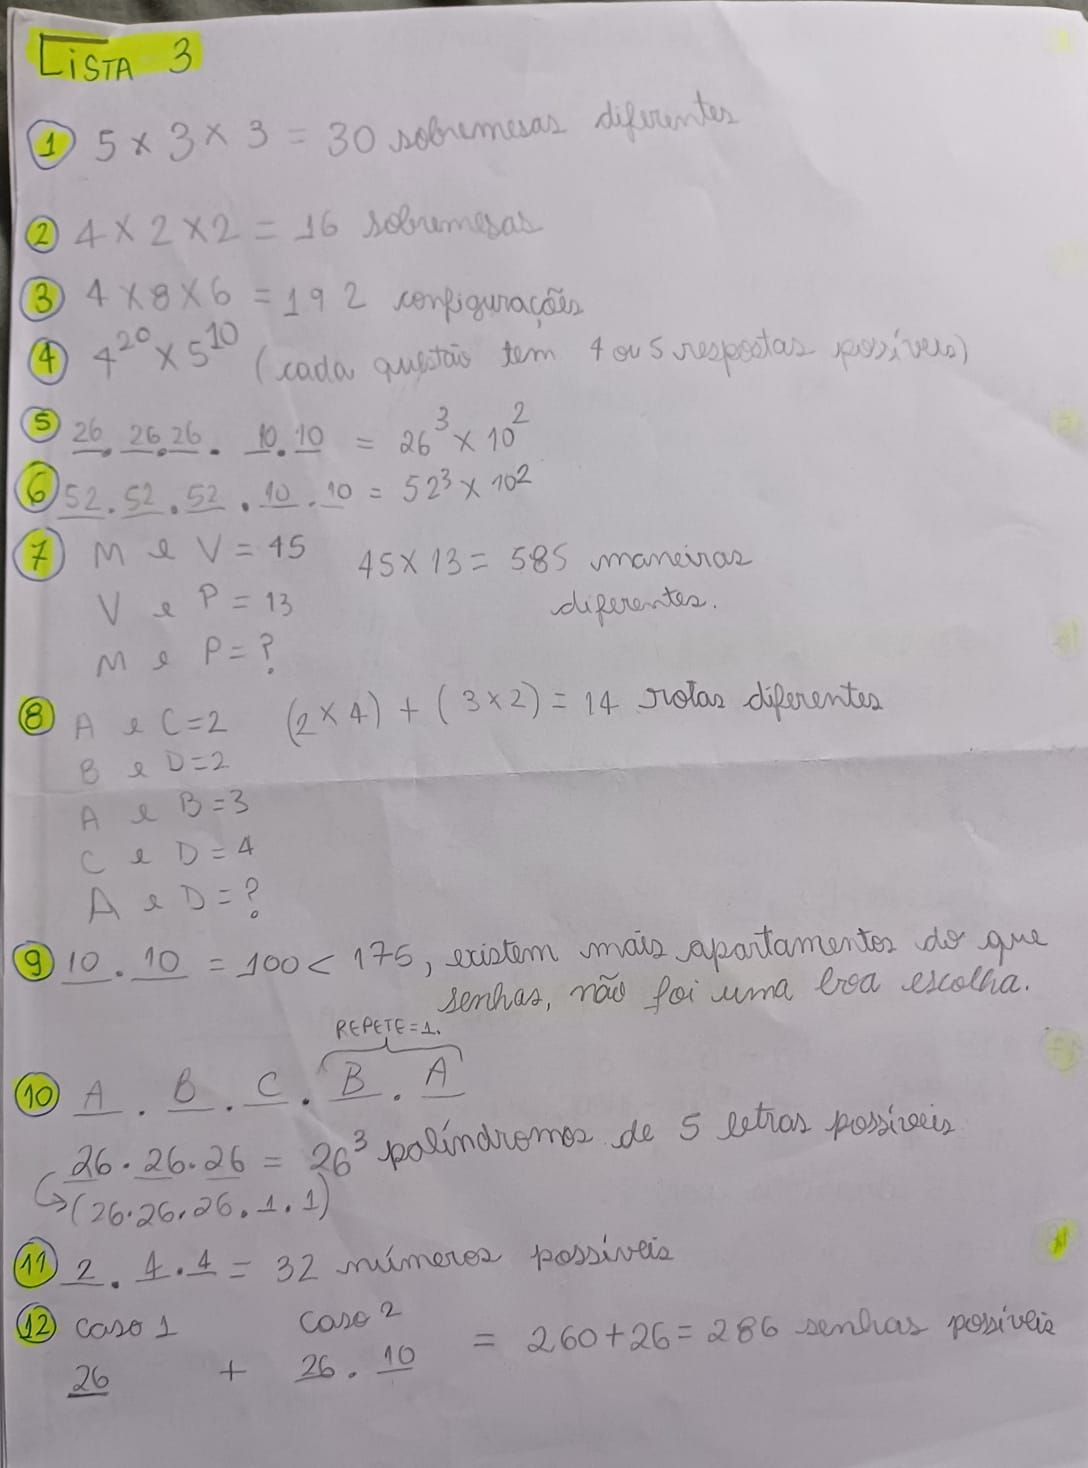 LISTA 3
1 5 x 3 x 3 = 30 sobremesas diferentes
2 4 x 2 x 2 = 16 sobremesas
3 4 x 8 x 6 = 192 configurações
4 4^20 x 5^10 (cada questão tem 4 ou 5 respostas possíveis)
5 26 . 26 . 26 . 10 . 10 = 26^3 x 10^2
6 52 . 52 . 52 . 10 . 10 = 52^3 x 10^2
7 M e V = 45 45 x 13 = 585 maneiras
V e P = 13 diferentes.
M e P = ?
8 A e C = 2 (2 x 4) + (3 x 2) = 14 rotas diferentes
B e D = 2
A e B = 3
C e D = 4
A e D = ?
9 10 . 10 = 100 < 175, existem mais apartamentos do que
senhas, não foi uma boa escolha.
REPETE = 1.
10 A . B . C . B . A
26 . 26 . 26 = 26^3 palíndromos de 5 letras possíveis
↪ (26 . 26 . 26 . 1 . 1)
11 2 . 4 . 4 = 32 números possíveis
12 caso 1 caso 2
26 + 26 . 10 = 260 + 26 = 286 senhas possíveis